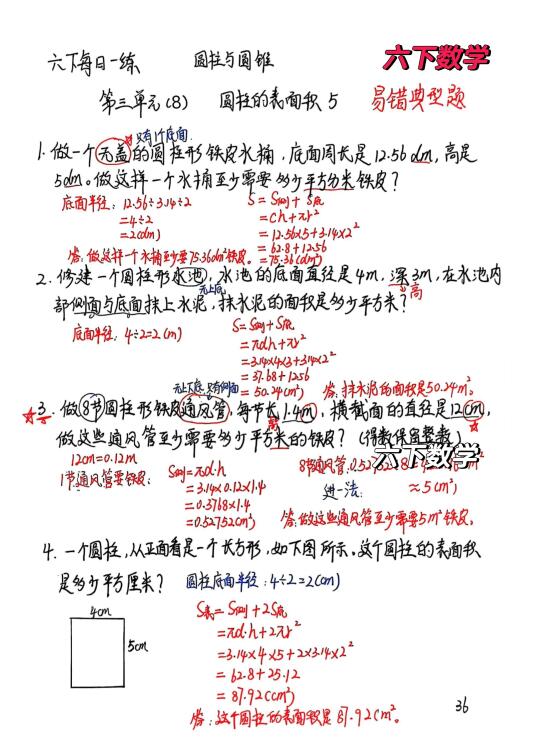 六下每日一练 圆柱与圆锥 六下数学
第三单元(8) 圆柱的表面积5 易错典型题
只有1个底面.
1. 做一个无盖的圆柱形铁皮水桶，底面周长是12.56dm，高是
5dm。做这样一个水桶至少需要多少平方分米铁皮？
底面半径：12.56÷3.14÷2 S=S侧+S底
=4÷2 =ch+πr²
=2(dm) =12.56×5+3.14×2²
=62.8+12.56
答：做这样一个水桶至少要75.36dm²铁皮。 =75.36(dm²)
2. 修建一个圆柱形水池，水池的底面直径是4m，深3m，在水池内
无上底 高
部侧面与底面抹上水泥，抹水泥的面积是多少平方米？
底面半径：4÷2=2(m) S=S侧+S底
=πdh+πr²
=3.14×4×3+3.14×2²
=37.68+12.56
无上下底，只有侧面 =50.24(m²) 答：抹水泥的面积是50.24m²。
3. 做8节圆柱形铁皮通风管，每节长1.4m，横截面的直径是12cm，
高
做这些通风管至少需要多少平方米的铁皮？(得数保留整数)
六下数学
12cm=0.12m 8节通风管：0.52
1节通风管要铁皮： S侧=πd·h 进一法： ≈5(m²)
=3.14×0.12×1.4
=0.3768×1.4
=0.52752(m²) 答：做这些通风管至少需要5m²铁皮。
4. 一个圆柱，从正面看是一个长方形，如下图所示。这个圆柱的表面积
是多少平方厘米？ 圆柱底面半径：4÷2=2(cm)
4cm S表=S侧+2S底
=πd·h+2πr²
5cm =3.14×4×5+2×3.14×2²
=62.8+25.12
=87.92(cm²)
答：这个圆柱的表面积是87.92cm²。
36